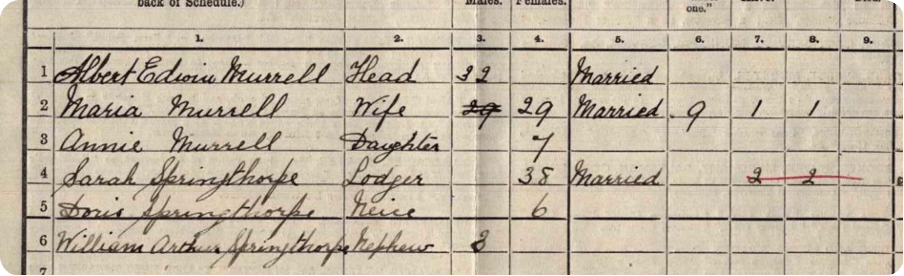 back of Schedule.) Males. Females. one."
1. 2. 3. 4. 5. 6. 7. 8. 9.
1 Albert Edwin Murrell Head 32 Married
2 Maria Murrell Wife 29 29 Married 9 1 1
3 Annie Murrell Daughter 7
4 Sarah Springthorpe Lodger 38 Married 2 2
5 Doris Springthorpe Neice 6
6 William Arthur Springthorpe Nephew 3
7